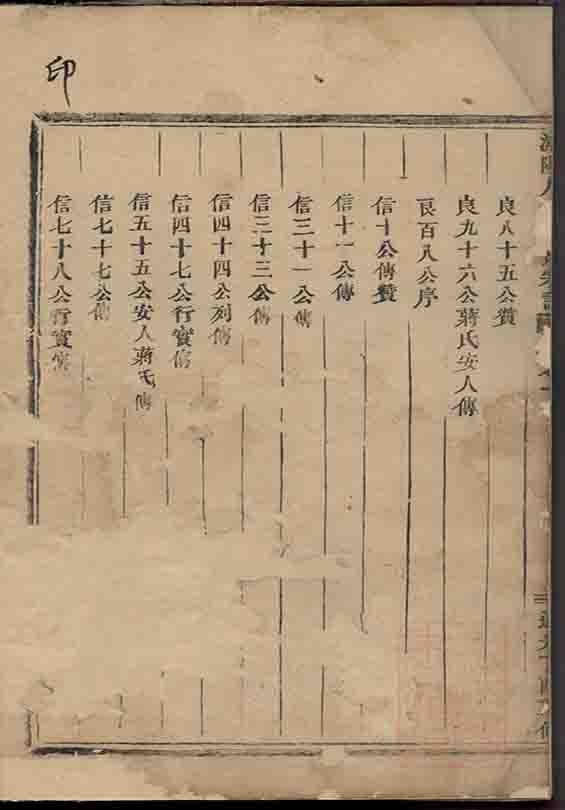 良八十五公贊
良九十六公蔣氏安人傳
良百八公序
信十公傳贊
信十一公傳
信三十一公傳
信三十三公傳
信四十四公列傳
信四十七公行實傳
信五十五公安人蔣氏傳
信七十七公傳
信七十八公行實傳
印